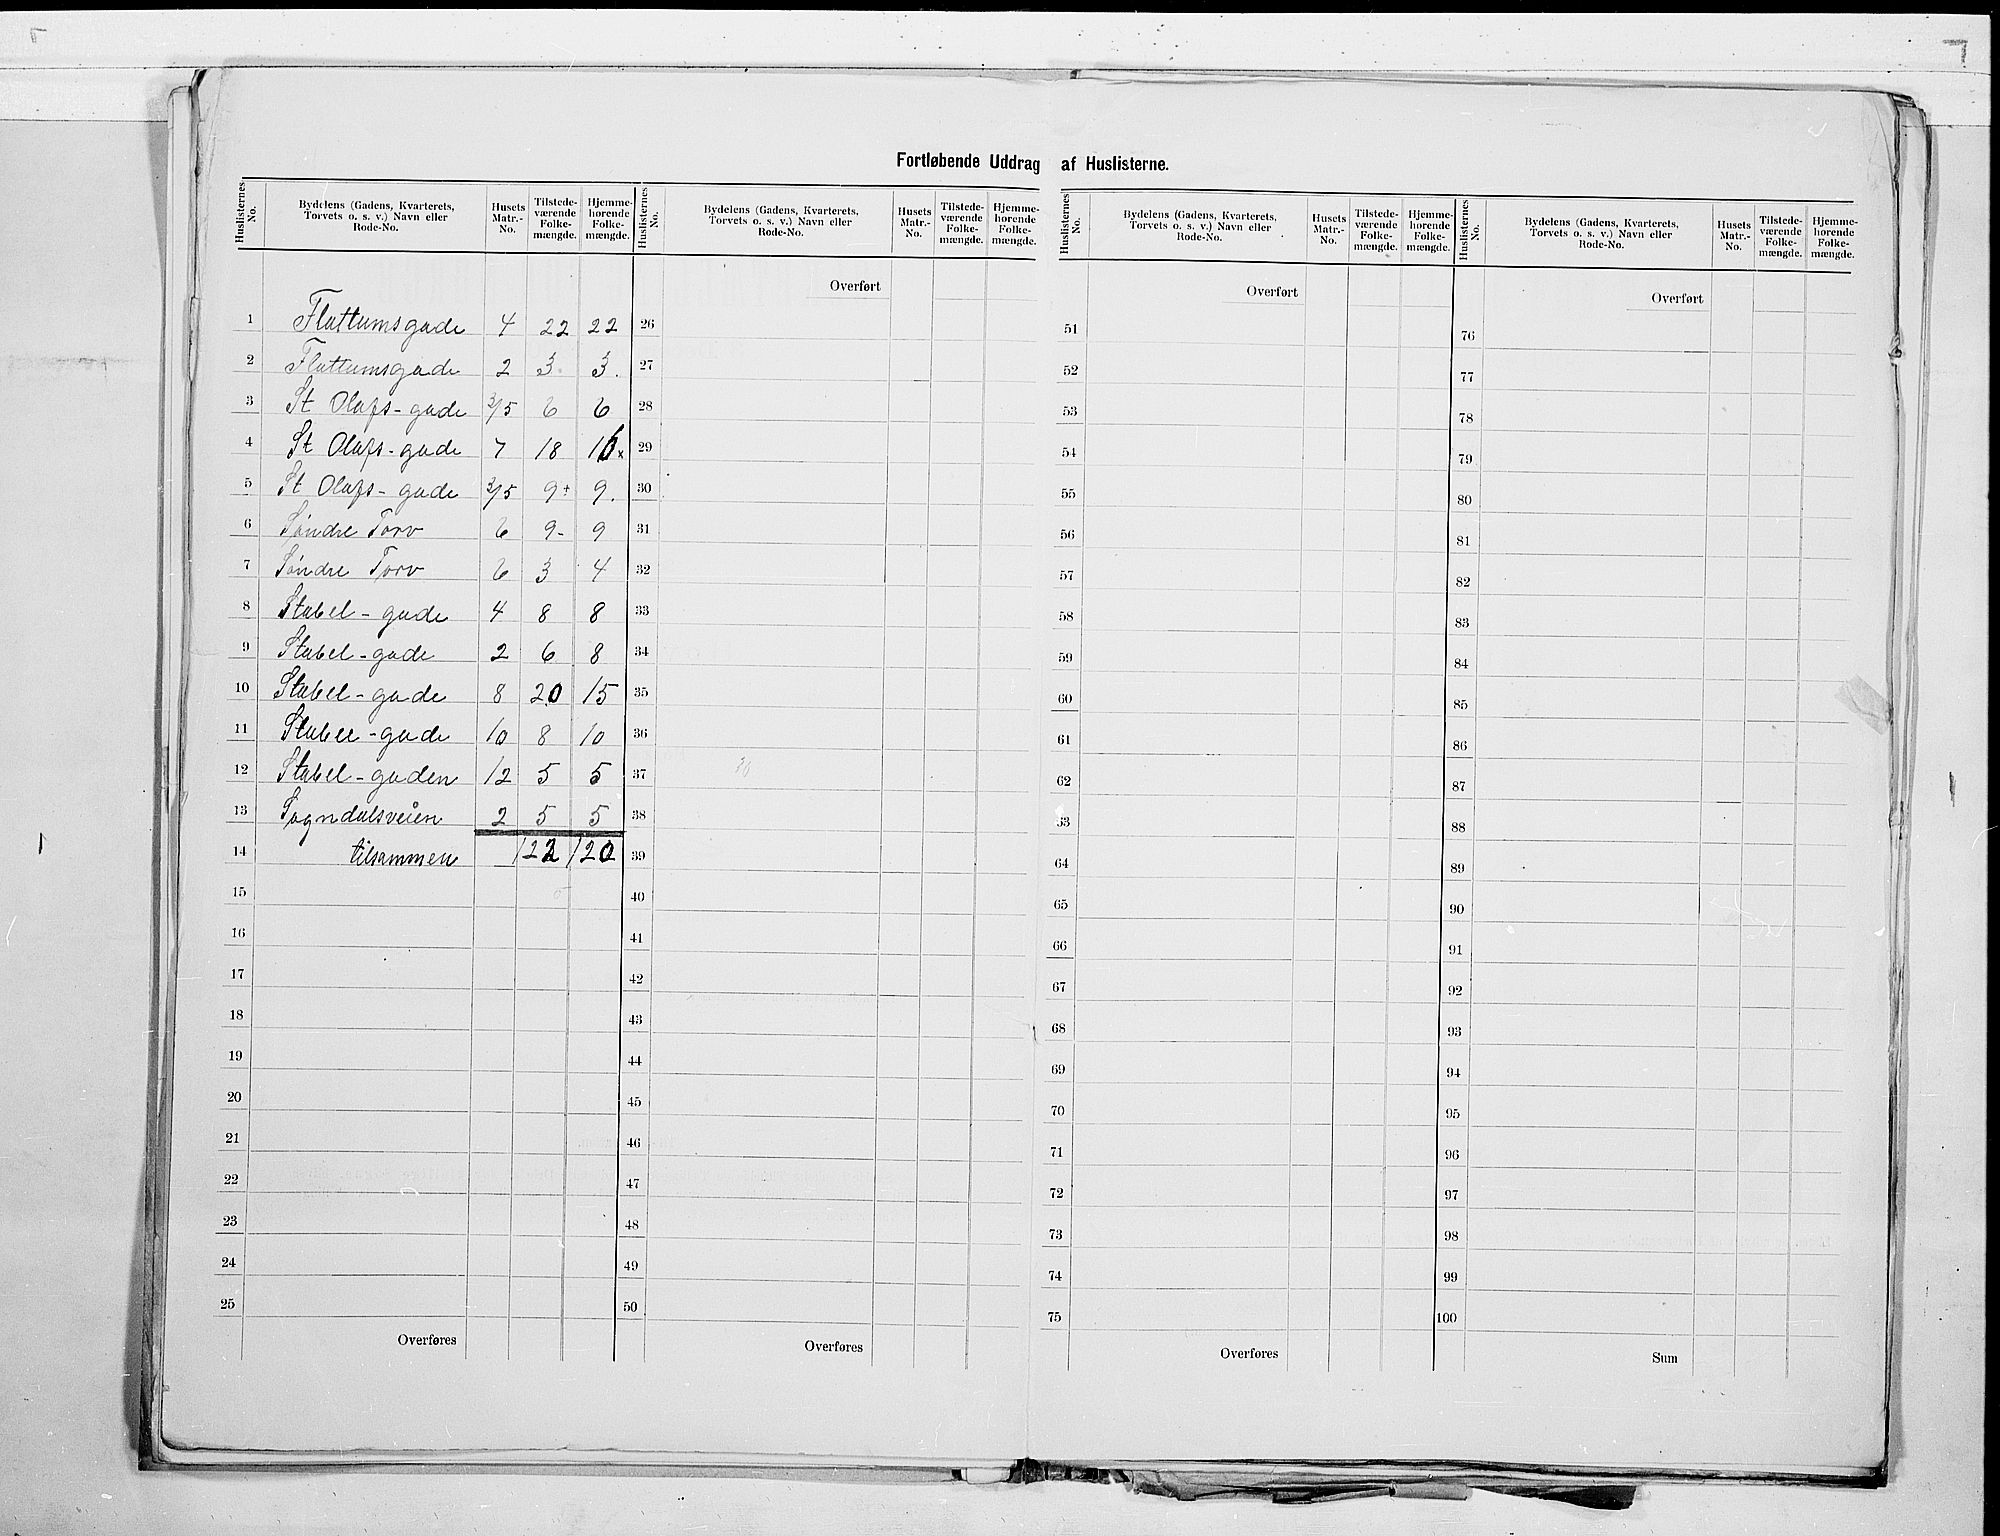 Fortløbende Uddrag af Huslisterne.
Huslisternes No. | Bydelens (Gadens, Kvarterets, Torvets o. s. v.) Navn eller Rode-No. | Husets Matr.-No. | Tilstedeværende Folkemængde. | Hjemmehørende Folkemængde. | Huslisternes No. | Bydelens (Gadens, Kvarterets, Torvets o. s. v.) Navn eller Rode-No. | Husets Matr.-No. | Tilstedeværende Folkemængde. | Hjemmehørende Folkemængde. | Huslisternes No. | Bydelens (Gadens, Kvarterets, Torvets o. s. v.) Navn eller Rode-No. | Husets Matr.-No. | Tilstedeværende Folkemængde. | Hjemmehørende Folkemængde. | Huslisternes No. | Bydelens (Gadens, Kvarterets, Torvets o. s. v.) Navn eller Rode-No. | Husets Matr.-No. | Tilstedeværende Folkemængde. | Hjemmehørende Folkemængde.
Overført Overført Overført
1 Flattumsgade 4 22 22 26 51 76
2 Flattumsgade 2 3 3. 27 52 77
3 St Olafs-gade 3/5 6 6 28 53 78
4 St Olafs-gade 7 18 16x 29 54 79
5 St Olafs-gade 3/5 9+ 9. 30 55 80
6 Søndre Torv 6 9- 9 31 56 81
7 Søndre Torv 6 3 4 32 57 82
8 Stabel-gade 4 8 8 33 58 83
9 Stabel-gade 2 6 8 34 59 84
10 Stabel-gade 8 20 15 35 60 85
11 Stabel-gade 10 8 10 36 61 86
12 Stabel-gaden 12 5 5 37 62 87
13 Sogndalsveien 2 5 5 38 63 88
14 tilsammen 122 120 39 64 89
15 40 65 90
16 41 66 91
17 42 67 92
18 43 68 93
19 44 69 94
20 45 70 95
21 46 71 96
22 47 72 97
23 48 73 98
24 49 74 99
25 50 75 100
Overføres Overføres Overføres Sum